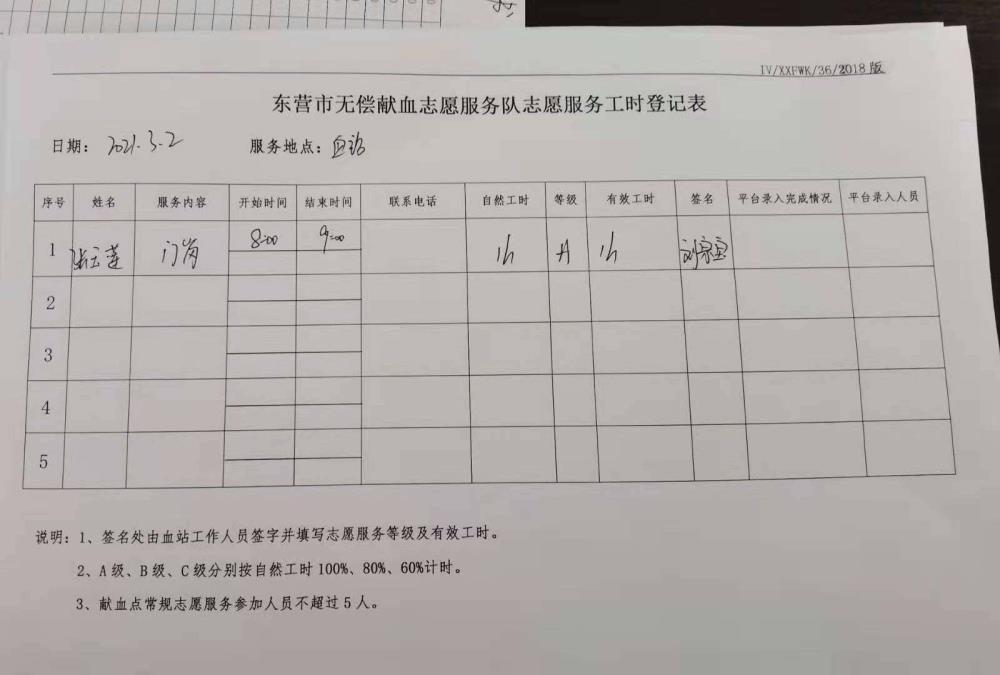 IV/XXFWK/36/2018版
东营市无偿献血志愿服务队志愿服务工时登记表
日期：2021.3.2 服务地点：血站
序号 姓名 服务内容 开始时间 结束时间 联系电话 自然工时 等级 有效工时 签名 平台录入完成情况 平台录入人员
1 张云莲 门岗 8:00 9:00 1h A 1h 刘宗宝
2
3
4
5
说明：1、签名处由血站工作人员签字并填写志愿服务等级及有效工时。
2、A级、B级、C级分别按自然工时100%、80%、60%计时。
3、献血点常规志愿服务参加人员不超过5人。